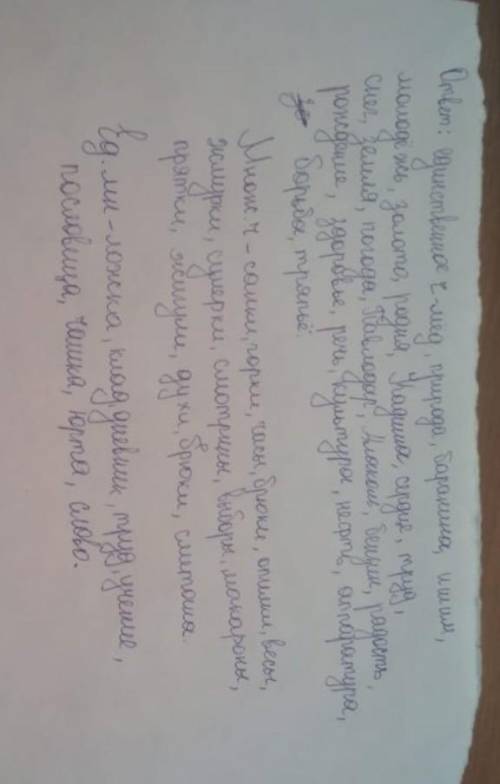 Ответ: единственное ч-мед, природа, баранина, ишим,
молодёжь, золото, родня, Кадиша, сердце, труд,
снег, земля, погода, Павлодар, бензин, радость,
рождение, здоровье, речь, культура, нефть, аппаратура,
борьба, тряпьё.
Множ ч - санки, горки, часы, брюки, опилки, весы,
жмурки, сумерки, смотрины, выборы, макароны,
прятки, жмурки, духи, брюки, сметана.
Ед. мн - ложка, клад, дневник, труд, учение,
пословица, чашка, юрта, слово.